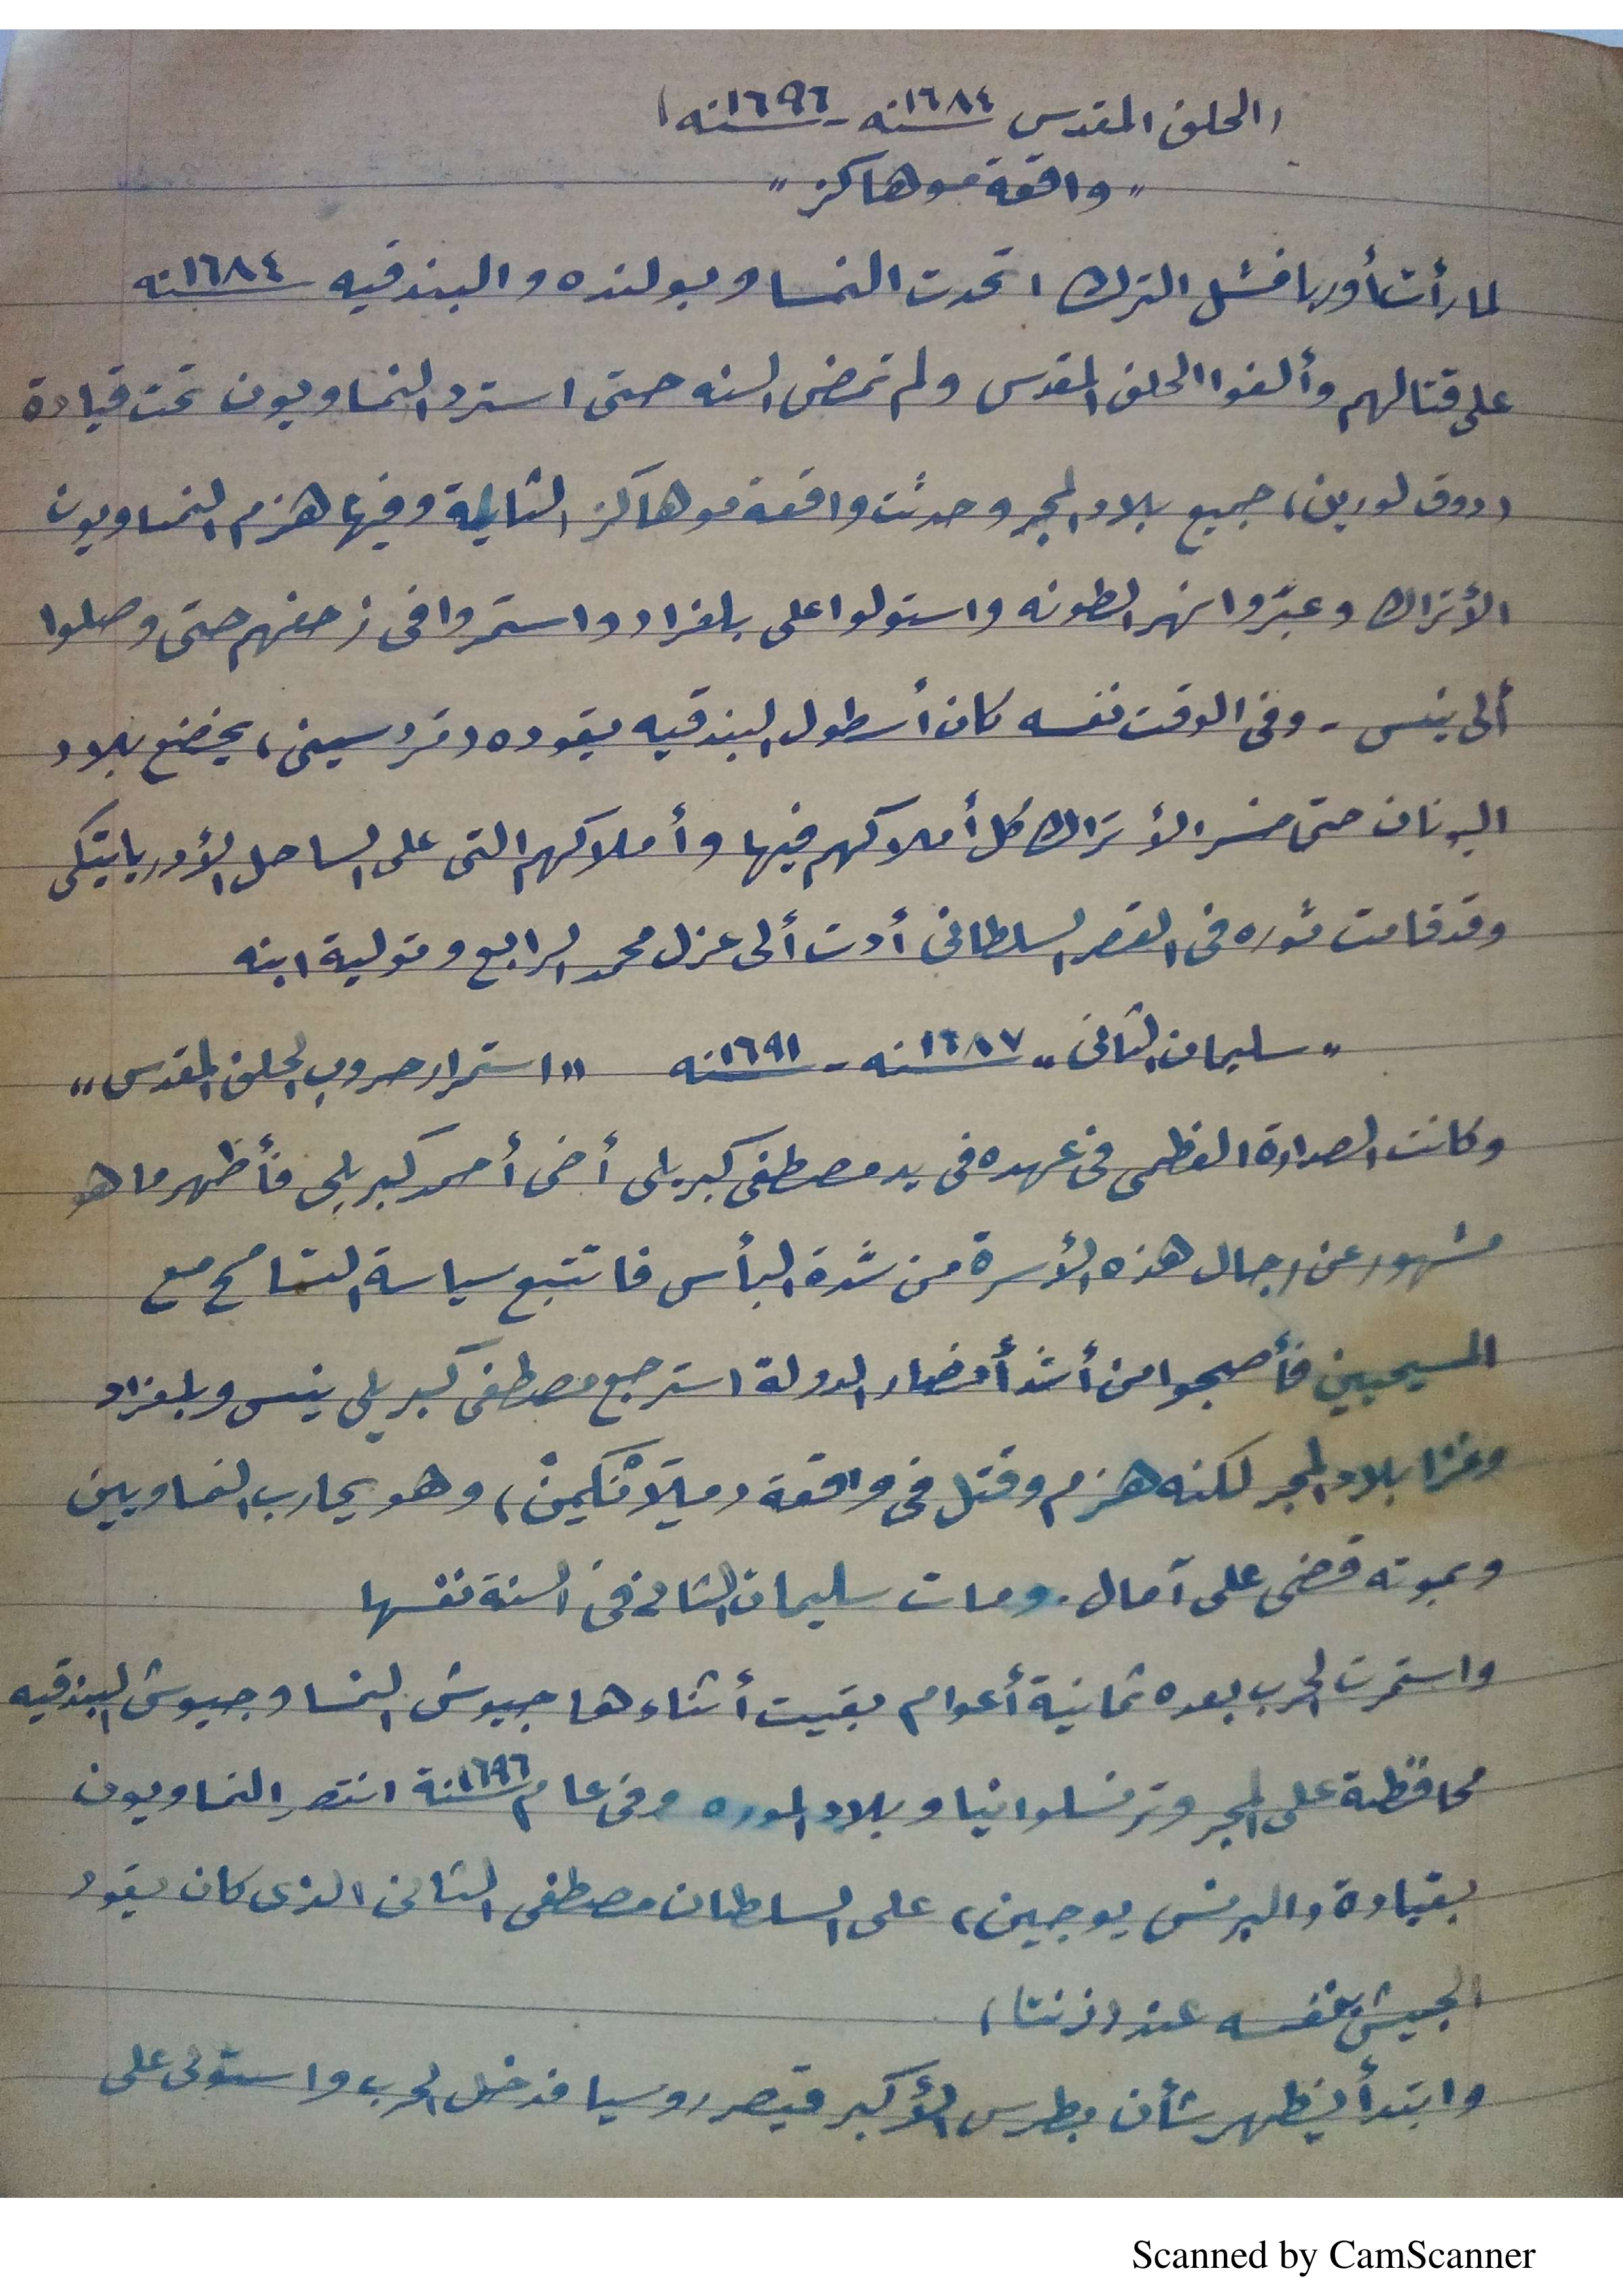 (الحلف المقدس سنه ١٦٨٤ - سنه ١٦٩٦)
"واقعة موهاكز"
لما رأت أوربا فشل الترك اتحدت النمسا وبولنده والبندقيه سنه ١٦٨٤
على قتالهم وألفوا الحلف المقدس ولم تمض السنه حتى استرد النمساويون تحت قيادة
(دوق لورين) جميع بلاد المجر وحدثت واقعة موهاكز الثانية وفيها هزم النمساويون
الأتراك وعبّروا نهر الطونه واستولوا على بلغراد واستمروا فى زحفهم حتى وصلوا
ألى ينس - وفى الوقت نفسه كان أسطول البندقيه يقوده (مَرْسينى) يخضع بلاد
اليونان حتى خسر الأتراك كل أملاكهم فيها وأملاكهم التى على الساحل الأدرياتيكى
وقد قامت ثوره فى القصر السلطانى أدت ألى عزل محمد الرابع وتولية ابنه
"سليمان الثانى" سنه ١٦٨٧ - سنه ١٦٩١ "استمرار حروب الحلف المقدس"
وكانت الصدارة العظمى فى عهده فى يد مصطفى كبريلى أخى أحمد كبريلى فأظهر ما هو
مشهور عن رجال هذه الأسرة من شدة البأس فاتتبع سياسة التسامح مع
المسيحيين فأصبحوا من أشد أنصار الدولة استرجع مصطفى كبريلى ينس وبلغراد
وغزا بلاد المجر لكنه هزم وقتل فى واقعة (ميَلَانْكَيمنْ) وهو يحارب النمساويين
وبموته قضى على آمال. ومات سليمان الثانى فى السنة نفسها
واستمرت الحرب بعده ثمانية أعوام بقيت أثناءها جيوش النمسا وجيوش البندقيه
محافظة على المجر وترنسلوانيا وبلاد الموره وفى عام سنة ١٦٩٦ انتصر النمساويون
بقيادة (البرنس يوجين) على السلطان مصطفى الثانى الذى كان يقود
الجيش بنفسه عند (زنتا)
وابتدأ يظهر شأن بطرس الأكبر قيصر روسيا فدخل الحرب واستولى على
Scanned by CamScanner